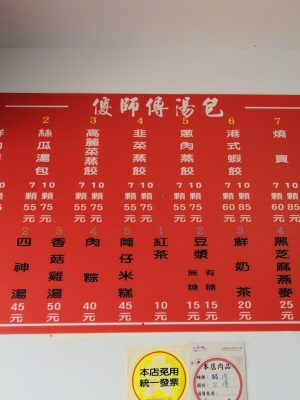 傻師傅湯包
2 絲瓜湯包 7顆55元 10顆75元
3 高麗菜蒸餃 7顆55元 10顆75元
4 韭菜蒸餃 7顆55元 10顆75元
5 蔥肉蒸餃 7顆55元 10顆75元
6 港式蝦餃 7顆60元 10顆85元
7 燒賣 7顆60元 10顆85元
2 四神湯 45元
3 香菇雞湯 50元
4 肉粽 40元
5 筒仔米糕 45元
1 紅茶 10元
2 豆漿 無糖 15元 有糖 15元
3 鮮奶茶 20元
4 黑芝麻燕麥 25元
本店免用
統一發票
本店肉品